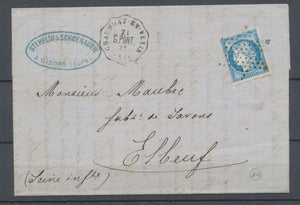 STEHELIN & SCHOENAUER
A GISORS (EURE)
CHAUMONT-EN-VEXIN
21
SEPT.
Monsieur Maubec
fabt. de Savons
Elbeuf
(Seine infre)